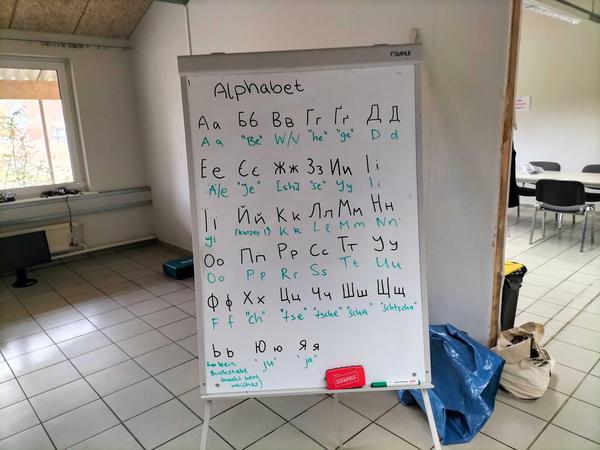 DAHLE
Alphabet
Аа Бб Вв Гг Ґґ Дд
A a "Be" W/V "he" "ge" D d
Ее Єє Жж Зз Ии Іі
Ä/e "Je" [sh] "se" Yy Ii
Її Йй Кк Лл Мм Нн
yi (kurzes i) K k L l M m N n
Оо Пп Рр Сс Тт Уу
O o P p R r S s T t U u
Фф Хх Цц Чч Шш Щщ
F f "ch" "tse" "tsche" "scha" "schtscha"
Ьь Юю Яя
kein "ju" "ja"
Buchstabe
(macht Wort
weicher)
STAPLES